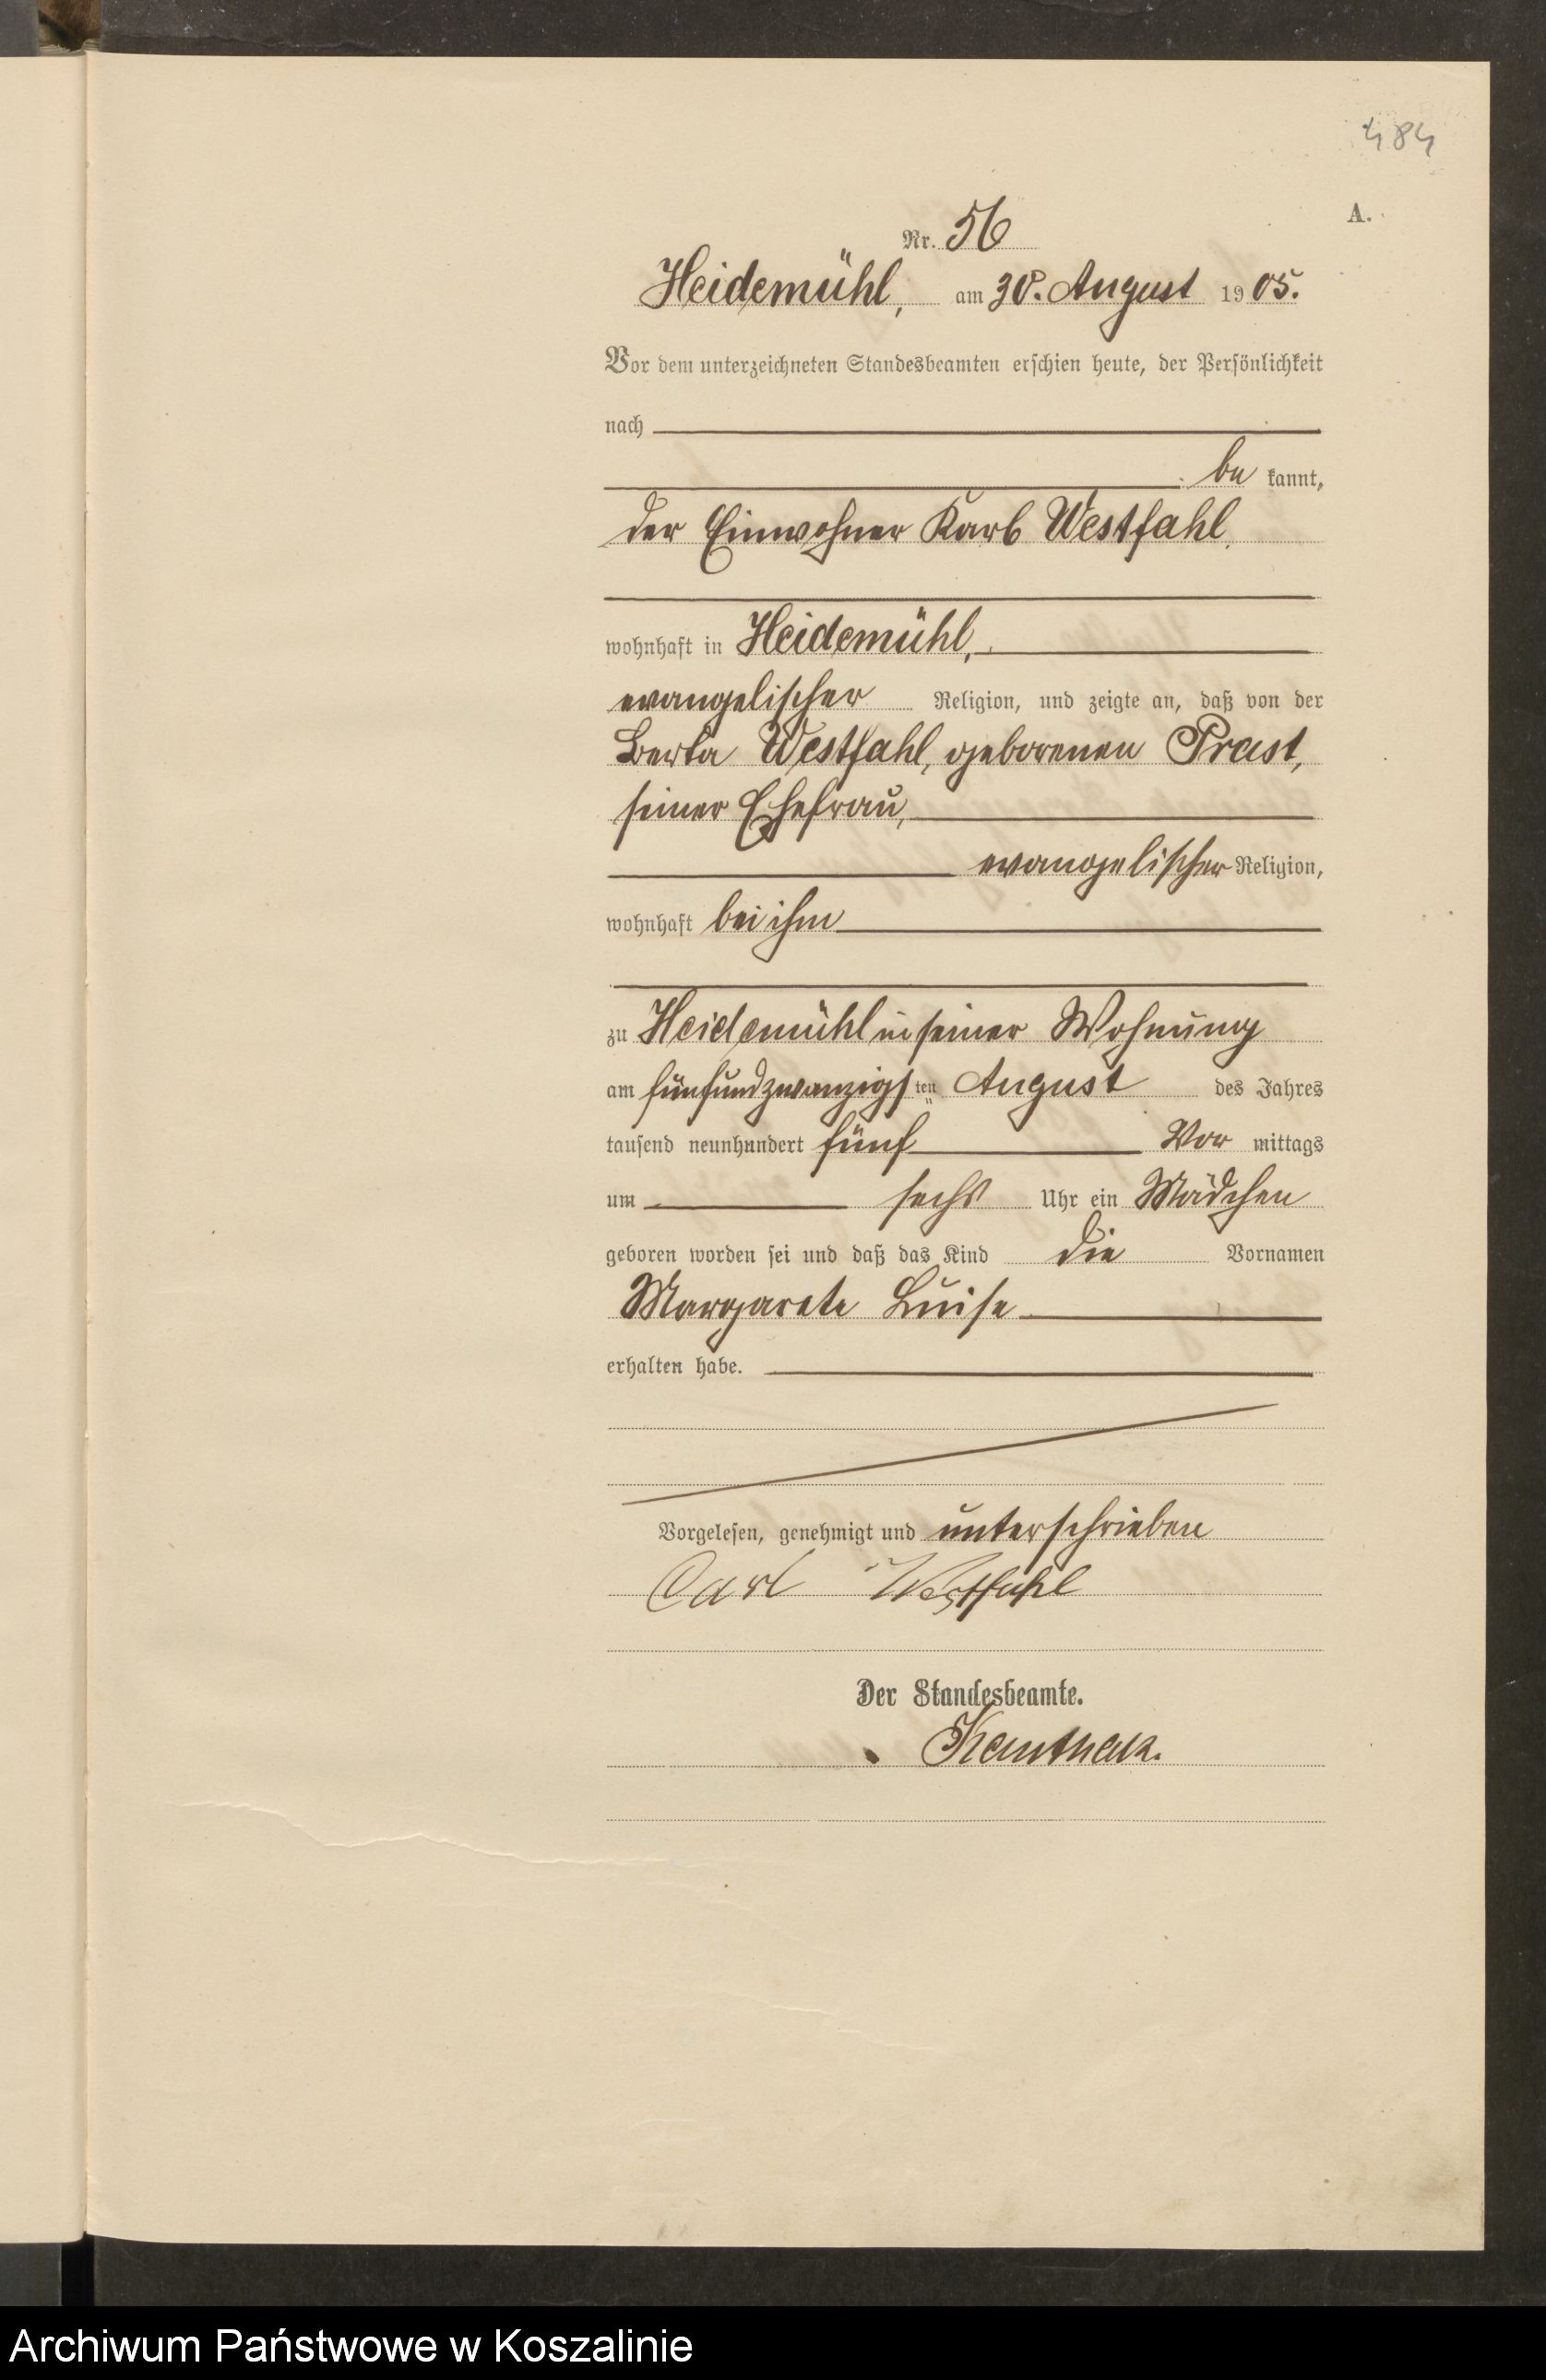 484
A.
Nr. 56
Heidemühl, am 30. August 1905.
Vor dem unterzeichneten Standesbeamten erschien heute, der Persönlichkeit
nach
be kannt,
der Einwohner Karl Westfahl,
wohnhaft in Heidemühl,
evangelischer Religion, und zeigte an, daß von der
Berta Westfahl, geborenen Prast,
seiner Ehefrau,
evangelischer Religion,
wohnhaft bei ihm
zu Heidemühl in seiner Wohnung
am fünfundzwanzigsten August des Jahres
tausend neunhundert fünf Vor mittags
um sechs Uhr ein Mädchen
geboren worden sei und daß das Kind die Vornamen
Margarete Luise
erhalten habe.
Vorgelesen, genehmigt und unterschrieben
Carl Westfahl
Der Standesbeamte.
Archiwum Państwowe w Koszalinie